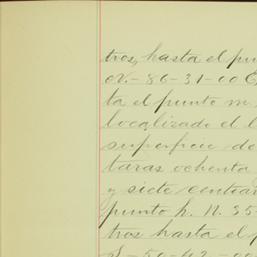 tros, hasta el pun
N.-86-31-00 E
ta el punto m
localizado el l
superficie de
taras ochenta
y siete centiar
punto h. N. 35-
tros hasta el p
S-50-42-00